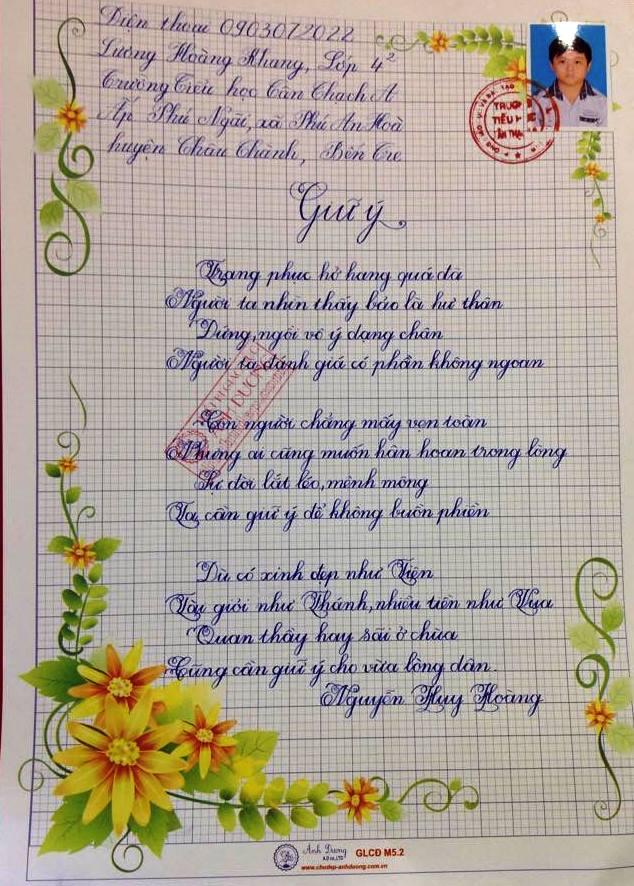 Điện thoại 0903072022
Lương Hoàng Khang, Lớp 4²
Trường Tiểu học Tân Thạch A
Ấp Phú Ngãi, xã Phú An Hoà
huyện Châu Thành, Bến Tre
TRƯỜNG
TIỂU HỌC
Giữ ý
Trang phục hở hang quá đà
Người ta nhìn thấy bảo là hư thân
Đứng, ngồi vô ý dạng chân
Người ta đánh giá có phần không ngoan
Con người chẳng mấy vẹn toàn
Nhưng ai cũng muốn hân hoan trong lòng
Sự đời lắt léo, mênh mông
Ta cần giữ ý để không buồn phiền
Dù có xinh đẹp như Tiên
Tài giỏi như Thánh, nhiều tiền như Vua
Quan thầy hay sãi ở chùa
Cũng cần giữ ý cho vừa lòng dân.
Nguyễn Huy Hoàng
Anh Dương
GLCĐ M5.2
www.chudep-anhduong.com.vn